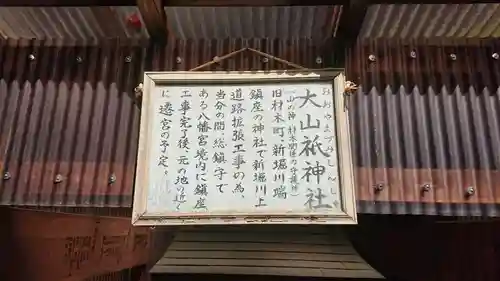 大山祇神社
おおやまづみじんじゃ
(山の神・材木関係の守護神)
旧材木町、新堀川端
鎮座の神社で新堀川上
道路拡張工事の為、
当分の間、総鎮守で
ある八幡宮境内に鎮座
工事完了後、元の地の近く
に遷宮の予定。